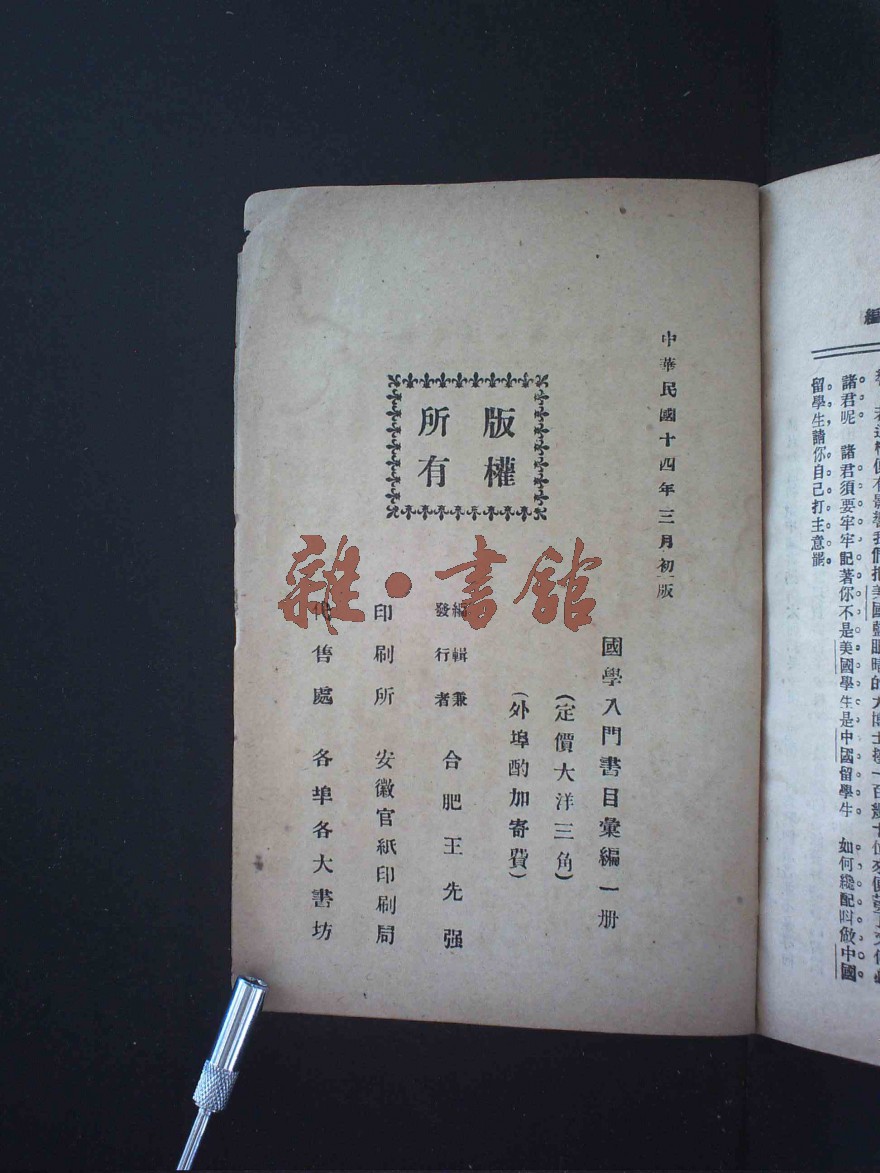 編
諸君呢 諸君須要牢牢記著你不是美國學生是中國留學生 如何纔配叫做中國
留學生請你自己打主意罷
中華民國十四年三月初版
版權
所有
國學入門書目彙編一册
(定價大洋三角)
(外埠酌加寄費)
編輯兼
發行者 合肥王先强
印刷所 安徽官紙印刷局
代售處 各埠各大書坊
雜·書館